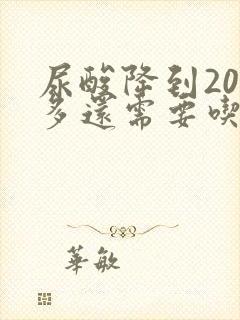 尿酸降到20
多還需要喫
華敏